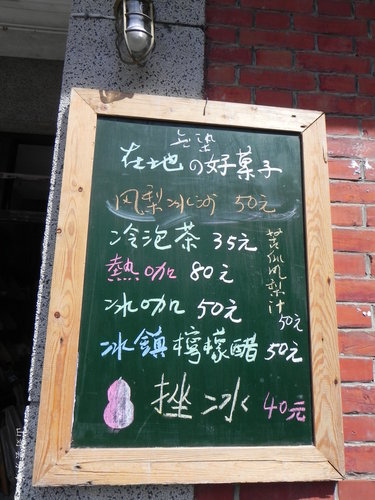 無染
在地の好菓子
风梨冰沙 50元
冷泡茶 35元
熱咖 80元
冰咖 50元
冰鎮檸檬醋 50元
挫冰 40元
梨汁 50元